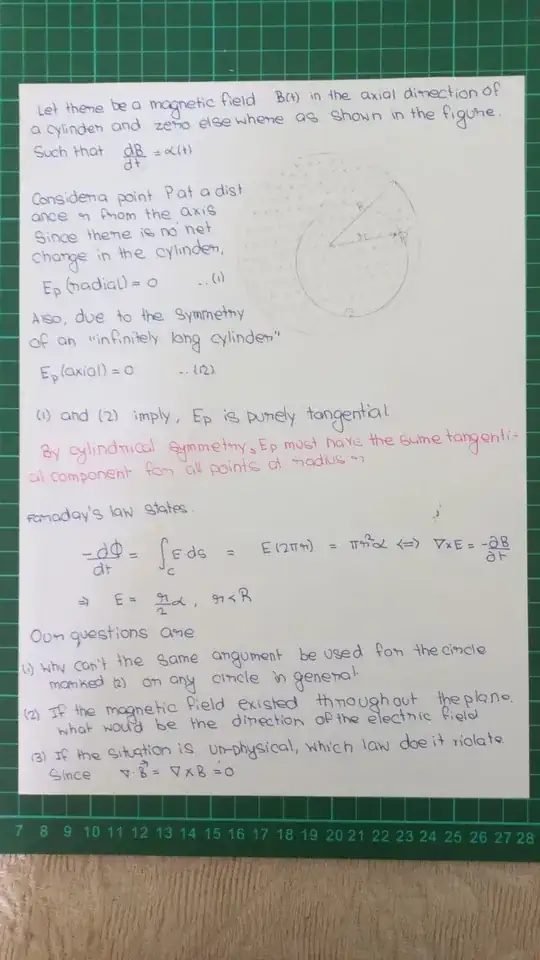 Let there be a magnetic field B(t) in the axial direction of
a cylinder and zero elsewhere as shown in the figure.
Such that dB/dt = α(t)
Consider a point P at a dist
ance r from the axis
Since there is no net
charge in the cylinder,
Ep (radial) = 0 ..(1)
Also, due to the symmetry
of an "infinitely long cylinder"
Ep (axial) = 0 ..(2)
(1) and (2) imply, Ep is purely tangential
By cylindrical symmetry, Ep must have the same tangenti-
al component for all points at radius r
R
r
P
2
Faraday's law states.
-dΦ/dt = ∫c E ds = E(2πr) = πr²α <=> ∇×E = -∂B/∂t
⇒ E = r/2 α, r<R
Our questions are
(1) Why can't the same argument be used for the circle
marked (2) or any circle in general.
(2) If the magnetic field existed throughout the plane.
what would be the direction of the electric field
(3) If the situation is un-physical, which law doe it violate
Since ∇·B⃗ = ∇×B = 0
7 8 9 10 11 12 13 14 15 16 17 18 19 20 21 22 23 24 25 26 27 28